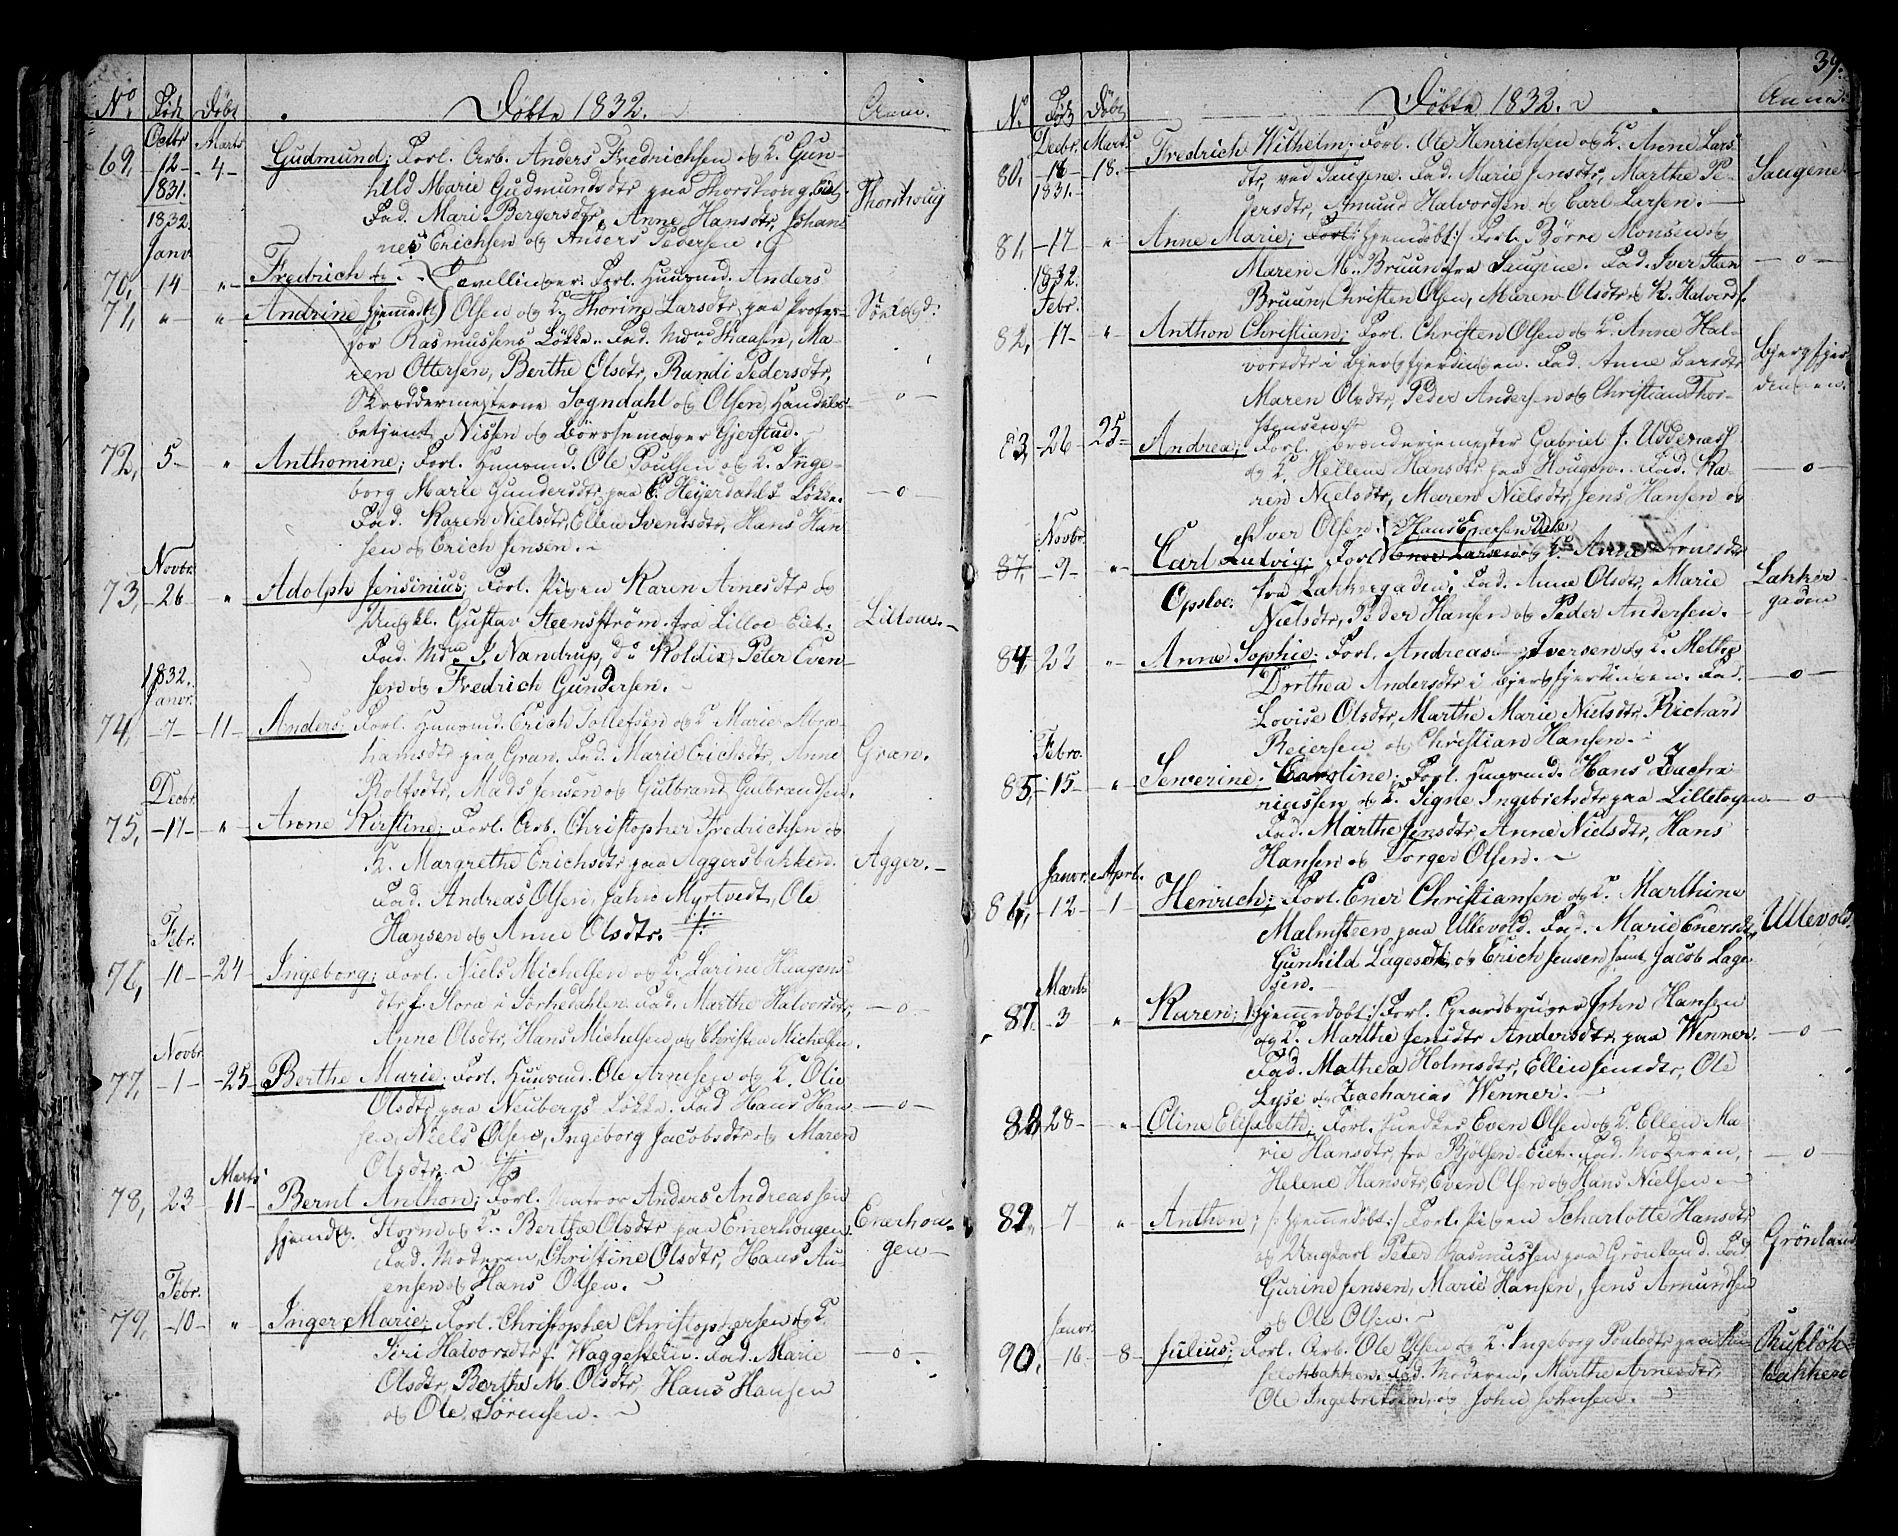 No Föd Döbt Döbte 1832. Anm.
Octbr Marts
69, 12 4 Gudmund; Forl. Arb. Anders Fredrichsen og K. Gun-
1831. hild Marie Gudmundsdtr paa Thorshoug Eiet. Thorshoug
1832. Fad. Mari Bergersdtr, Anne Hansdtr, Johan-
Janv. nes Erichsen og Anders Pedersen.
70, 14 " Fredrich og Tvellinger. Forl. Huusmd. Anders
71, " " Andrine hjemedt. Olsen og K. Thorine Larsdtr paa Profes-
sor Rasmussens Løkke. Fad. Md. Haasen, Ma-
ren Ottersen, Berthe Olsdtr, Randi Pedersdtr,
Skreddermesterne Sogndahl og Olsen, Handels- — o —
betjent Nissen og Börssemager Gjerstad.
72, 5 " Anthomine; Forl. Huusmd. Ole Poulsen og K. Inge-
borg Marie Gundersdtr paa Heyerdahls Løkke. — o —
Fad. Karen Nielsdtr, Ellen Svendsdtr, Hans Han-
sen og Erich Jensen.
Novbr.
73, 26 " Adolph Jensinius; Forl. Pigen Karen Arnesdtr og
Ungkl. Gustav Steenström fra Lilloe Eiet.
Fad. Md. J. Nandrup, do Koldix, Peter Even-
1832. sen og Fredrich Gundersen.
Janvr.
74, 7 11 Anders; Forl. Huusmd. Erich Tollefsen og K Marie Abra-
hamsdtr paa Gran. Fad. Marie Erichsdtr, Anne Gran.
Decbr. Rolfsdtr, Mads Jensen og Gulbrand Gulbrandsen.
75, 17 " Anne Kirstine; Forl. Arb. Christopher Fredrichsen og
K. Margrethe Erichsdtr paa Aggersbakken. Agger.
Fad. Andreas Olsen, Jahn Myrtvedt, Ole
Febr. Hansen og Anne Olsdtr.
76, 10 24 Ingeborg; Forl. Niels Michelsen og K. Karine Haagens-
dtr f. Stora i Sörkedahlen. Fad. Marthe Halvorsdtr, — o —
Novbr. Anne Olsdtr, Hans Michelsen og Christen Michelsen.
77, 1 25 Berthe Marie; Forl. Huusmd. Ole Arnesen og K. Olia
Olsdtr paa Neubergs Løkke. Fad. Hans Han- — o —
sen, Niels Olsen, Ingeborg Jacobsdtr og Maren
Marts Olsdtr.
78, 23 11 Bernt Anthon; Forl. Matros Anders Andreassen
hjemdt. Storm og K. Berthe Olsdtr paa Enerhougen. Enerhou-
Fad. Moderen, Christine Olsdtr, Hans Au- gen
Febr. ensen og Hans Olsen.
79, 10 " Inger Marie; Forl. Christopher Christophersen og K.
Siri Halvorsdtr f. Waggestein. Fad. Marie — o —
Olsdtr, Berthe M. Olsdtr, Hans Hansen
og Ole Sörensen.
39.
No Föd Döbt Döbte 1832. Anm.
Decbr. Marts
80, 16 18 Fredrich Wilhelm; Forl. Ole Henrichsen og K. Anne Lars-
1831. dtr, ved Saugene. Fad. Marie Jensdtr, Marthe Pe- Saugene
dersdtr, Amund Halvorsen og Carl Larsen.
81, 17 " Anne Marie; Forl: hjemdöbt:/ Forl. Börre Monsen og
1832. Maren M. Bruun fra Saugene. Fad. Iver Han — o —
Febr. Bruun, Christen Olsen, Maren Olsdtr og K. Halvords.
82, 17 " Anthon Christian; Forl. Christen Olsen og K. Anne Hal-
vorsdtr i Bjergfjerdingen. Fad. Anne Larsdtr Bjergfjer-
Maren Olsdtr, Peder Andersen og Christian Thor- dingen.
stensen
83, 26 25 Andrea; Forl. Brænderiemester Gabriel J. Uddenass
og K. Hellene Hansdtr paa Hougen. Fad. Ka- — o —
ren Nielsdtr, Maren Nielsdtr, Jens Hansen og
Novbr. Iver Olsen. Hans Enersen Dele
87, 9 " Carl Ludvig; Forl. Ener Larsen og K. Anne Arnesdtr
Opsloe: fra Lakkergaden. Fad. Anne Olsdtr, Marie Lakker-
Nielsdtr, Peder Hansen og Peder Andersen. gaden
84, 23 " Anne Sophie; Forl. Andreas Iversen og K. Methe
Dorthea Andersdtr i Bjergfjerdingen. Fad. — o —
Lovise Olsdtr, Marthe Marie Nielsdtr, Richard
Febr. Reiersen og Christian Hansen.
85, 15 " Severine Caroline; Forl. Huusmd. Hans Zacha-
riassen og K. Signe Ingebretsdtr paa Lilletoyen. — o —
Fad. Marthe Jensdtr, Anne Nielsdtr, Hans
Janvr. Aprl. Hansen og Torger Olsen.
86, 12 1 Henrich; Forl. Ener Christiansen og K. Marthine
Malmsteen paa Ullevold. Fad. Marie Enersdtr, Ullevold.
Gunhild Lagesdtr, og Erich Jensen samt Jacob Lage-
Marts sen.
87, 3 " Karen; /:hjemmedøbt:/ Forl. Gaardbruger John Hansen
og K. Marthe Jensdtr Andersdtr, paa Wenner. — o —
Fad. Mathea Holmsdtr, Ellen Jensdtr, Ole
Lyse og Zacharias Wenner.
88 28 " Oline Elisabeth; Forl. Snedker Even Olsen og K. Ellen Ma-
rie Hansdtr, fra Bjölsen Eiet. Fad. Moderen, — o —
Helene Hansdtr, Even Olsen og Hans Nielsen.
89, 7 " Anthon; /: hjemmedøbt:/ Forl. Pigen Scharlotte Hansdtr
og Ungkarl Peter Rasmussen paa Grönland. Fad. Grönland
Gurine Jensen, Marie Hansen, Jens Amundsen
Janvr. og Ole Olsen.
90, 16 8 Julius; Forl. Arb. Ole Olsen og K. Ingeborg Poulsdtr paa Ru- Rusløk-
seløkbakken. Fad. Moderen, Marthe Arnesdtr, bakken
Ole Ingebretsen, og John Johnsen.